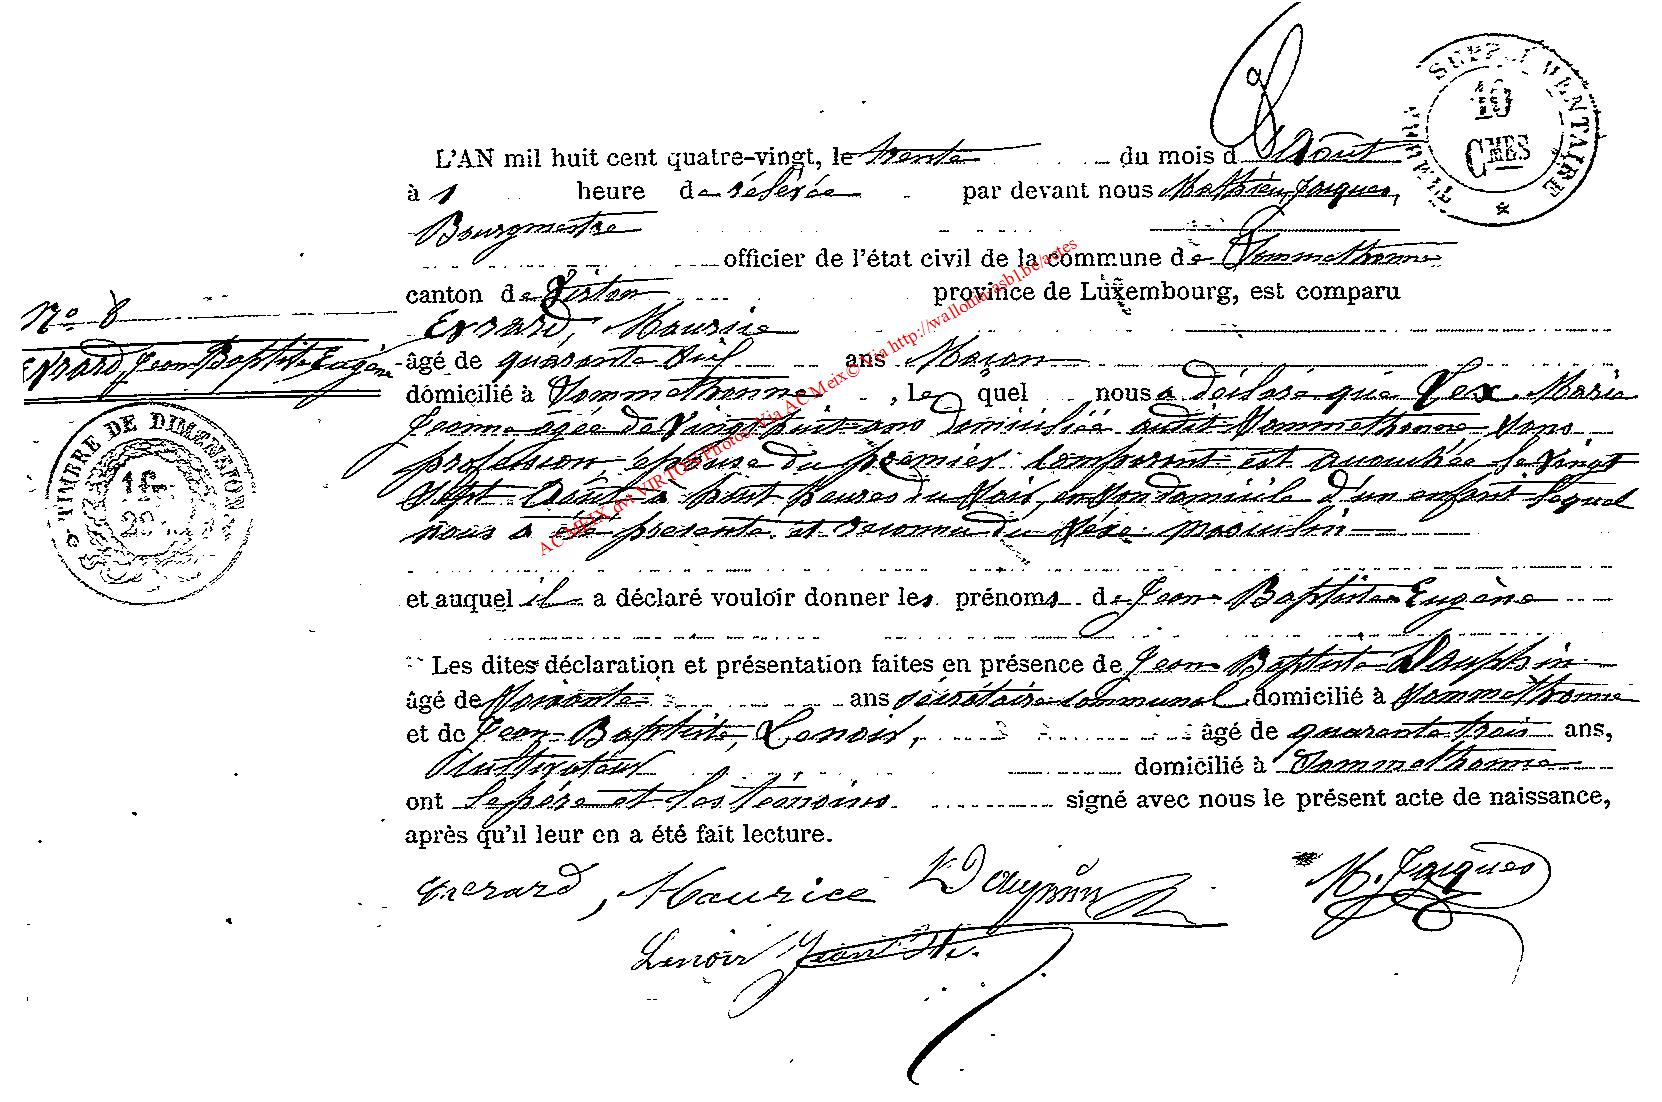 L'AN mil huit cent quatre-vingt, le trente du mois d'Août
à 1 heure de relevée par devant nous Mathieu Jacques,
Bourgmestre
officier de l'état civil de la commune de Sommethonne
canton de Virton province de Luxembourg, est comparu
N° 8
Evrard, Maurice
Evrard, Jean Baptiste Eugène
âgé de quarante huit ans Maçon
domicilié à Sommethonne, lequel nous a déclaré que Marie
Jeanne agée de Vingt huit ans domiciliée audit Sommethonne, sans
profession, épouse du premier comparant est accouchée le vingt
sept Août à huit heures du soir, en son domicile d'un enfant lequel
nous a été présenté et reconnu du sexe masculin
et auquel il a déclaré vouloir donner les prénoms de Jean Baptiste Eugène
Les dites déclaration et présentation faites en présence de Jean Baptiste Dauphin
âgé de ans secrétaire communal domicilié à Sommethonne
et de Jean-Baptiste, Lenoir, âgé de quarante trois ans,
Cultivateur domicilié à Sommethonne
ont le père et les témoins signé avec nous le présent acte de naissance,
après qu'il leur en a été fait lecture.
Evrard, Maurice Dauphin M. Jacques
Lenoir Jean Bte.
TIMBRE SUPPLÉMENTAIRE
10
CMES
TIMBRE DE DIMENSION
AC MEIX dvt VIRTON Photos Nja AC Meix © Nja http://wallonia-asbl.be/actes